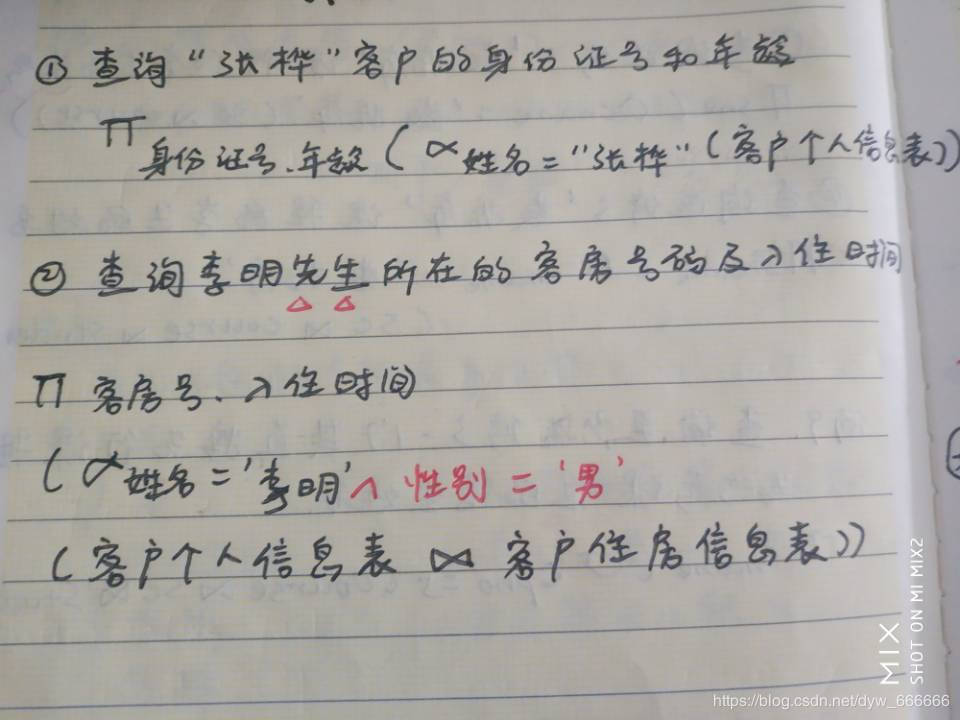 ① 查询“张桦”客户的身份证号和年龄
π 身份证号、年龄(∝姓名="张桦"(客户个人信息表))
② 查询李明先生所在的客房号码及入住时间
π 客房号、入住时间
(∝姓名='李明'∧性别='男'
(客户个人信息表 ⋈ 客户住房信息表))
MIX
SHOT ON MI MIX2
https://blog.csdn.net/dyw_666666